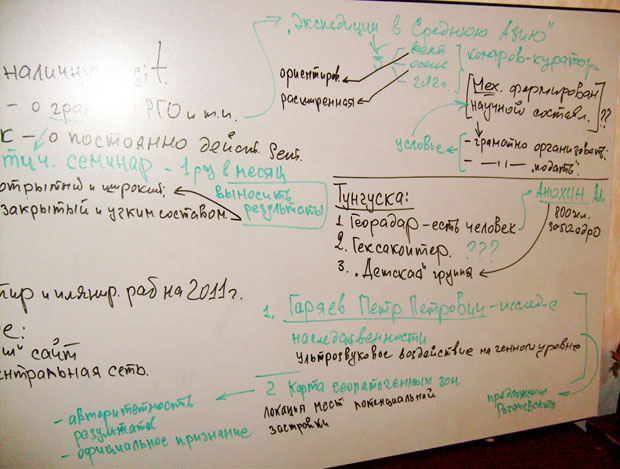 „Экспедиции в Среднюю Азию"
весна
осень
- 2012 г.
комаров-куратор
ориентиров.
расширенная
Мех. формирован
научной составл. ??
условие
- грамотно организовать
- —||— „подать"
наличи
- о гра РГО и т.п.
к - о постоянно дейст. Sem.
тич. семинар - 1 раз в месяц
открытый и широкий
закрытый и узким составом
выносить
результаты
Тунгуска:
1. Георадар - есть человек
2. Гексакоптер. ???
3. „Детская" группа
Анохин
800 км.
тир и планир. раб на 2011 г.
е:
ш" сайт
ентральная сеть.
1. Гаряев Петр Петрович - исслед-е
наследственности
ультрозвуковое воздействие на генном уровне
2 Карта геопатогенных зон.
локация мест потенциальной
застройки
- авторитетность
результатов
- официальное признание
предложение